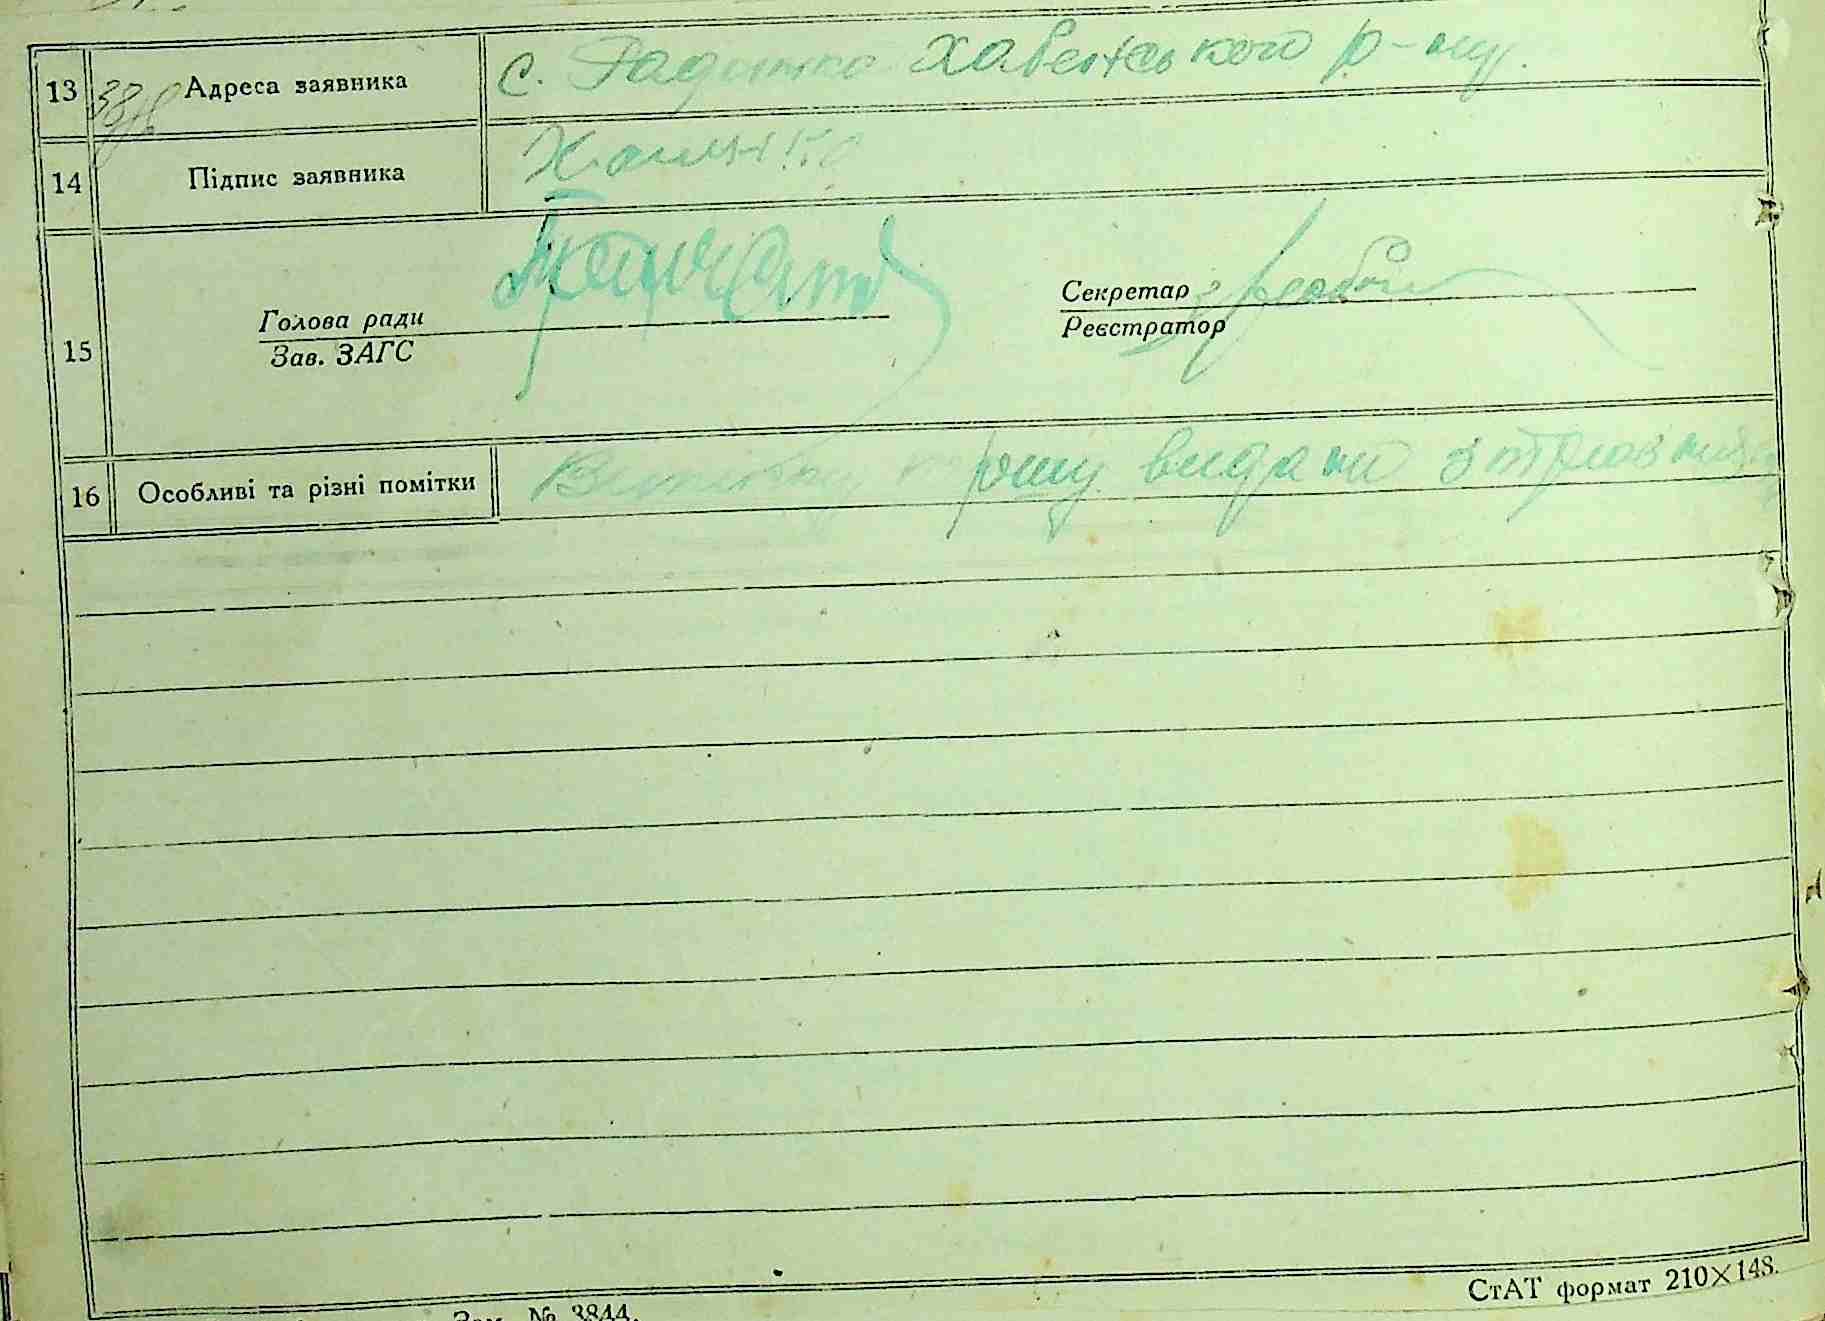 13 Адреса заявника с. Радинка Хабенського р-ну.
14 Підпис заявника
Голова ради Секретар
15 Зав. ЗАГС Реєстратор
16 Особливі та різні помітки прошу видати
Зам. № 3844.
СтАТ формат 210×148.